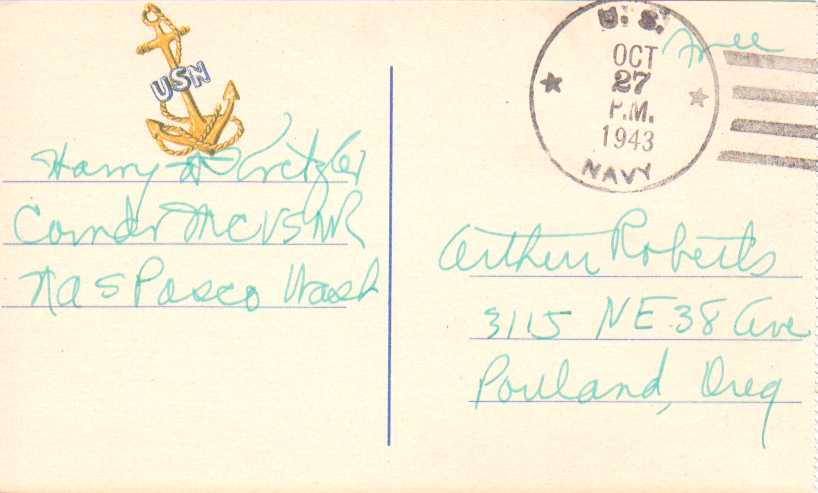 USN
U. S.
OCT
27
P.M.
1943
NAVY
Free
Harry H Kretzler
Comdr MC USNR
N A S Pasco Wash
Arthur Roberts
3115 NE 38 Ave
Portland, Oreg